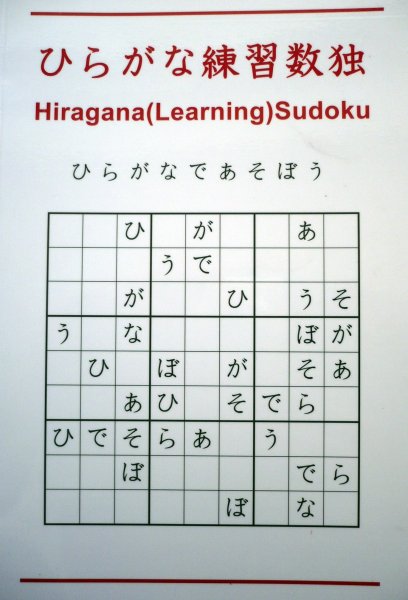 ひらがな練習数独
Hiragana(Learning)Sudoku
ひらがなであそぼう
ひ が あ
う で
が ひ う そ
う な ぼ が
ひ ぼ が そ あ
あ ひ そ で ら
ひ で そ ら あ う
ぼ で ら
ぼ な